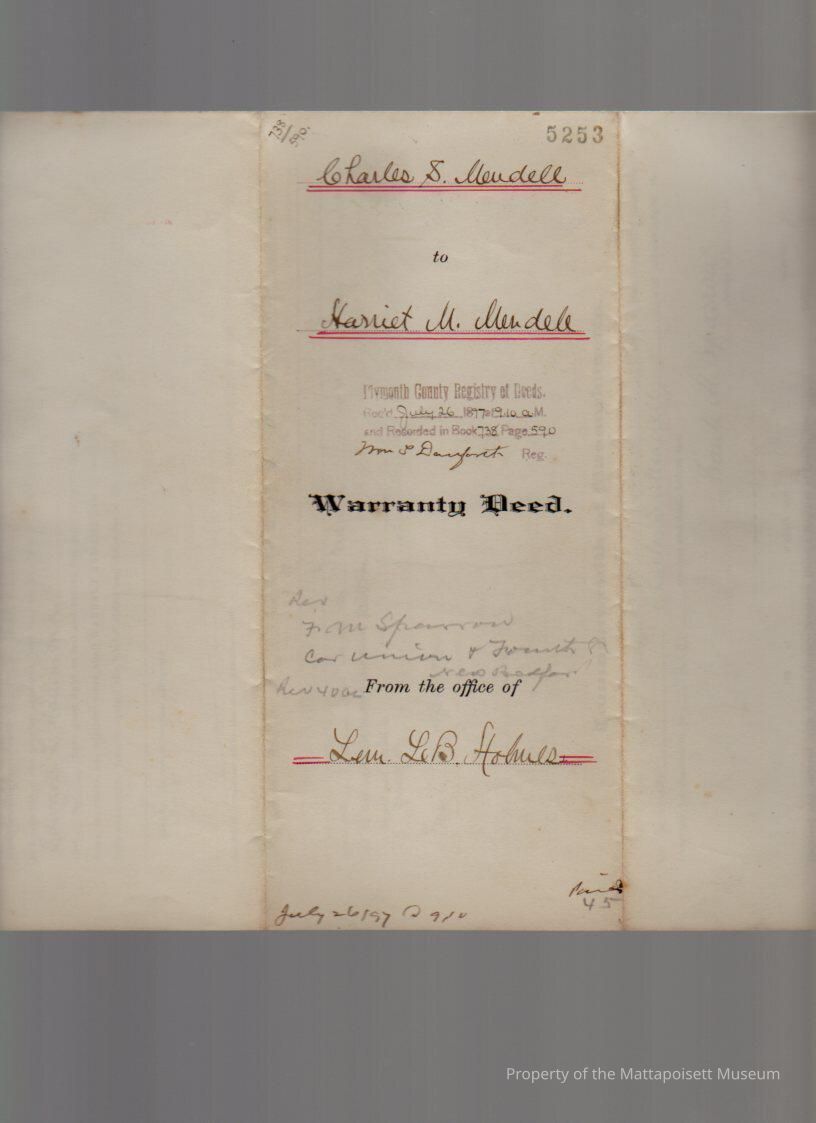 738/590.
5253
Charles S. Mendell
to
Harriet M. Mendell
Plymouth County Registry of Deeds.
Rec'd July 26 1897 at 9.10 a M.
and Recorded in Book 738 Page 590
Wm S Danforth Reg.
Warranty Deed.
Rev
F. M Sparrow
Cor Union & Fourth
New Bedford
From the office of
Lem. LeB. Holmes
45
July 26/97 @ 9/10
Property of the Mattapoisett Museum